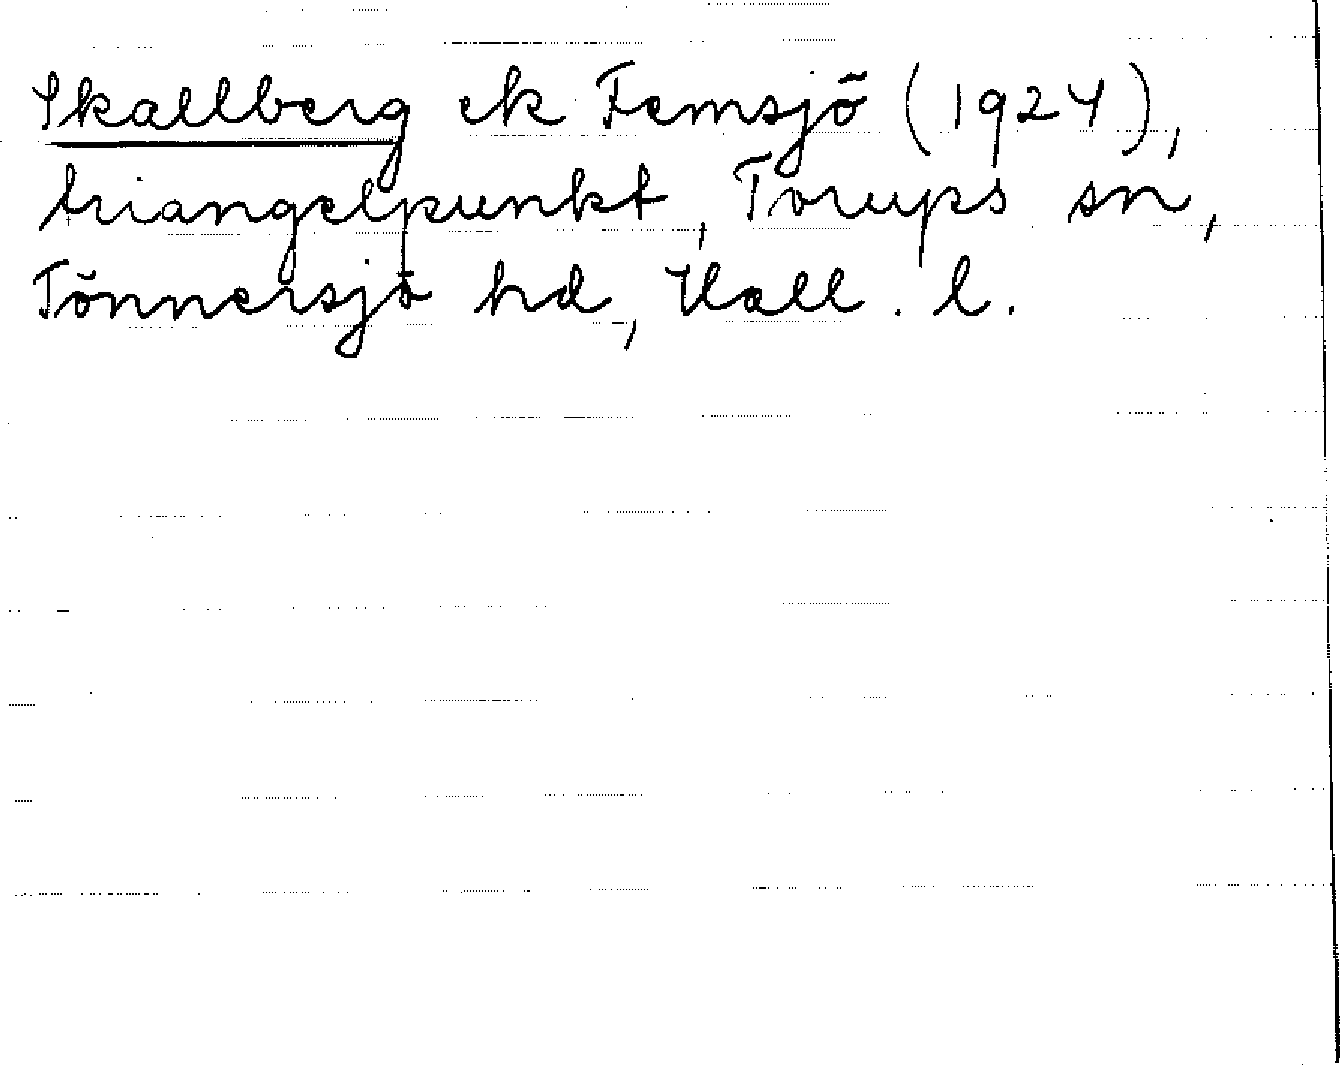 Skallberg ek Femsjö (1924),
triangelpunkt, Torups sn,
Tönnersjö hd, Hall. l.